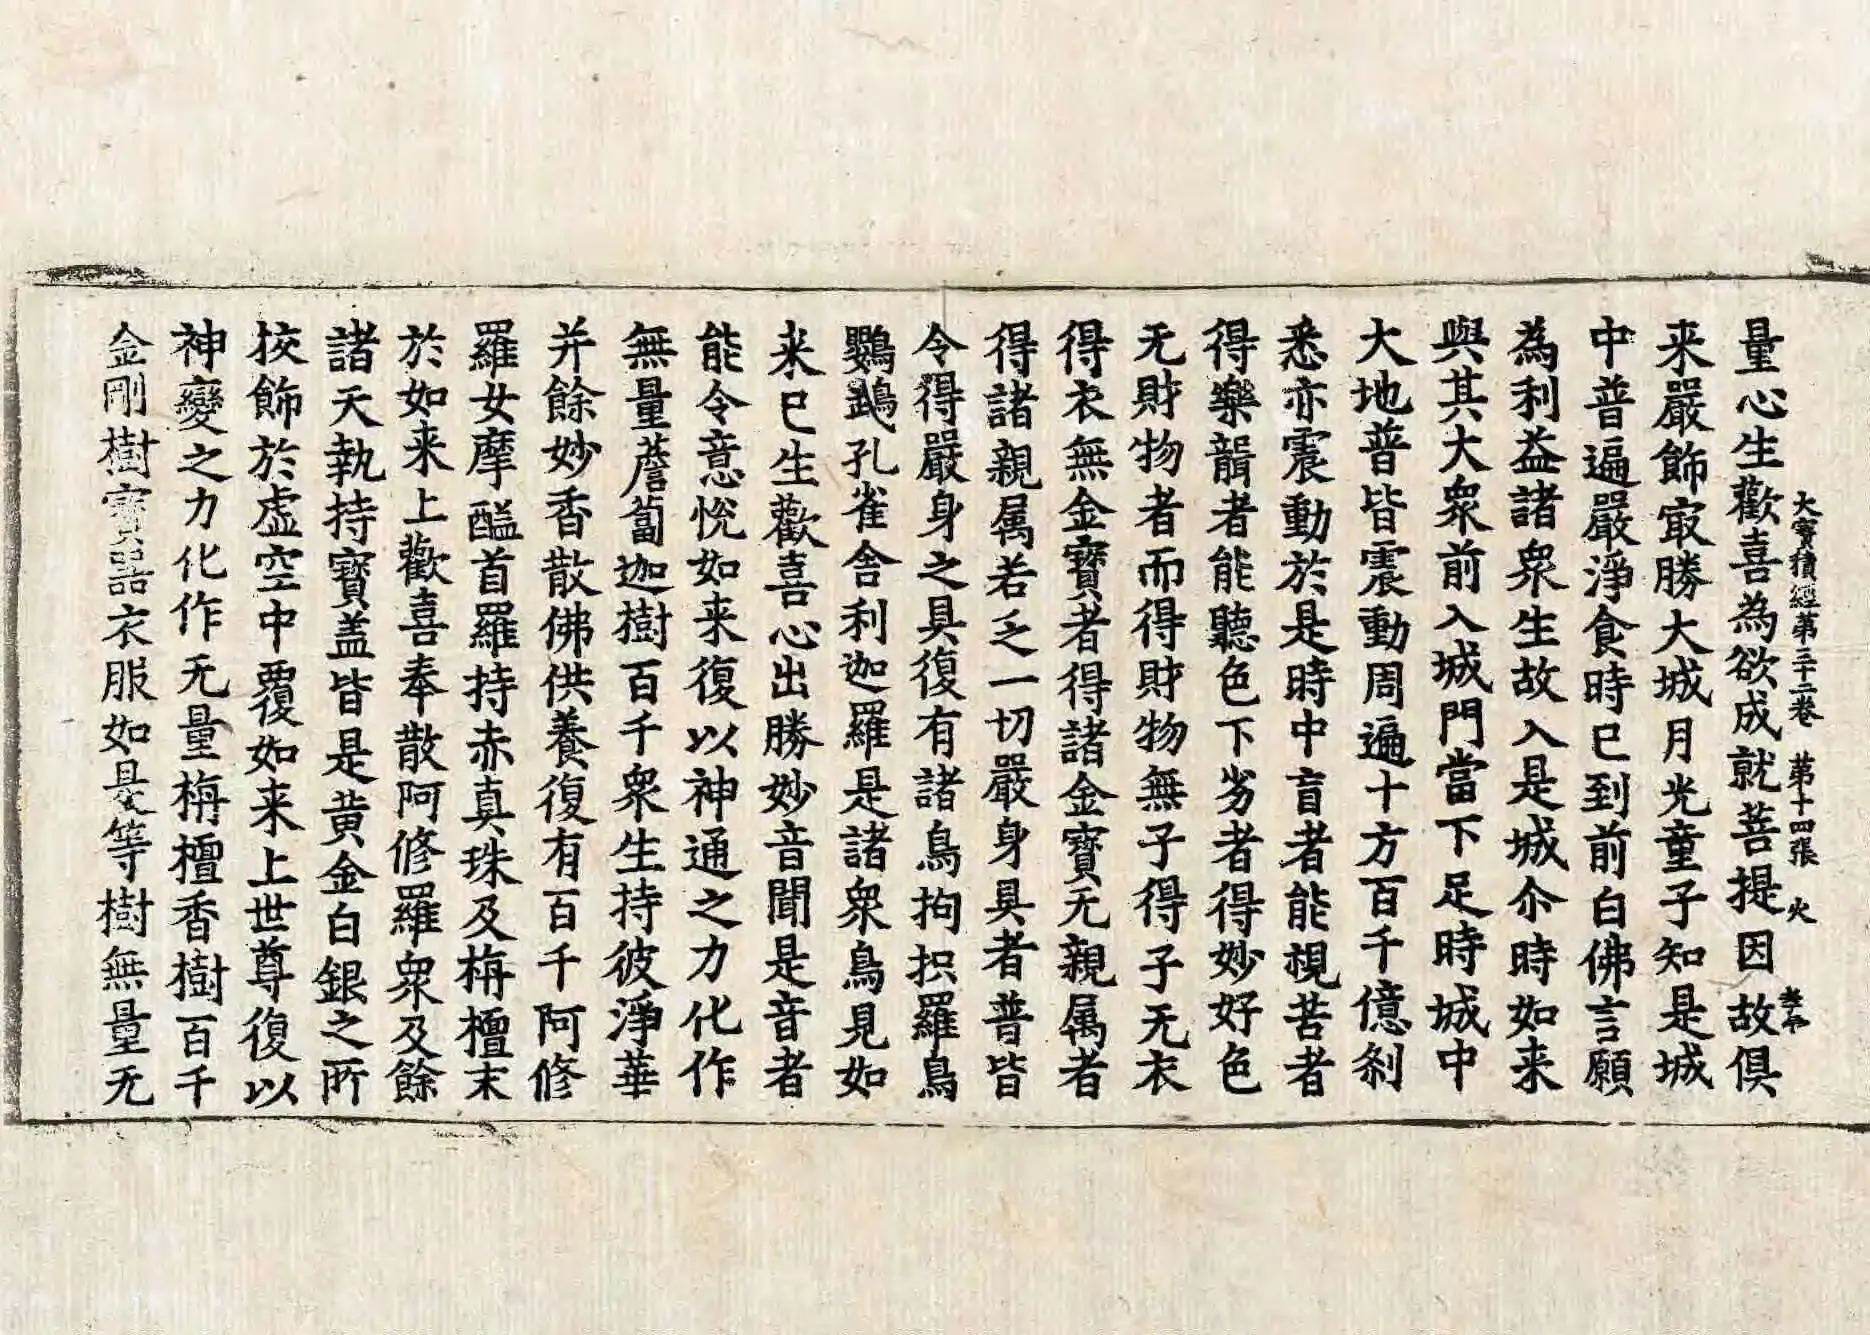 大寳積經第三十二卷 第十四張 火
量心生歡喜為欲成就菩提因故俱
来嚴飾冣勝大城月光童子知是城
中普遍嚴淨食時已到前白佛言願
為利益諸衆生故入是城尒時如来
與其大衆前入城門當下足時城中
大地普皆震動周遍十方百千億刹
悉亦震動於是時中盲者能視苦者
得樂聾者能聽色下劣者得妙好色
无財物者而得財物無子得子无衣
得衣無金寳者得諸金寳无親属者
得諸親属若乏一切嚴身具者普皆
令得嚴身之具復有諸鳥拘抧羅鳥
鸚鵡孔雀舎利迦羅是諸衆鳥見如
来已生歡喜心出勝妙音聞是音者
能令意恱如来復以神通之力化作
無量薝蔔迦樹百千衆生持彼淨華
并餘妙香散佛供養復有百千阿修
羅女摩醯首羅持赤真珠及栴檀末
於如来上歡喜奉散阿修羅衆及餘
諸天執持寳盖皆是黄金白銀之所
挍飾於虚空中覆如来上世尊復以
神變之力化作无量栴檀香樹百千
金剛樹寳器衣服如是等樹無量无